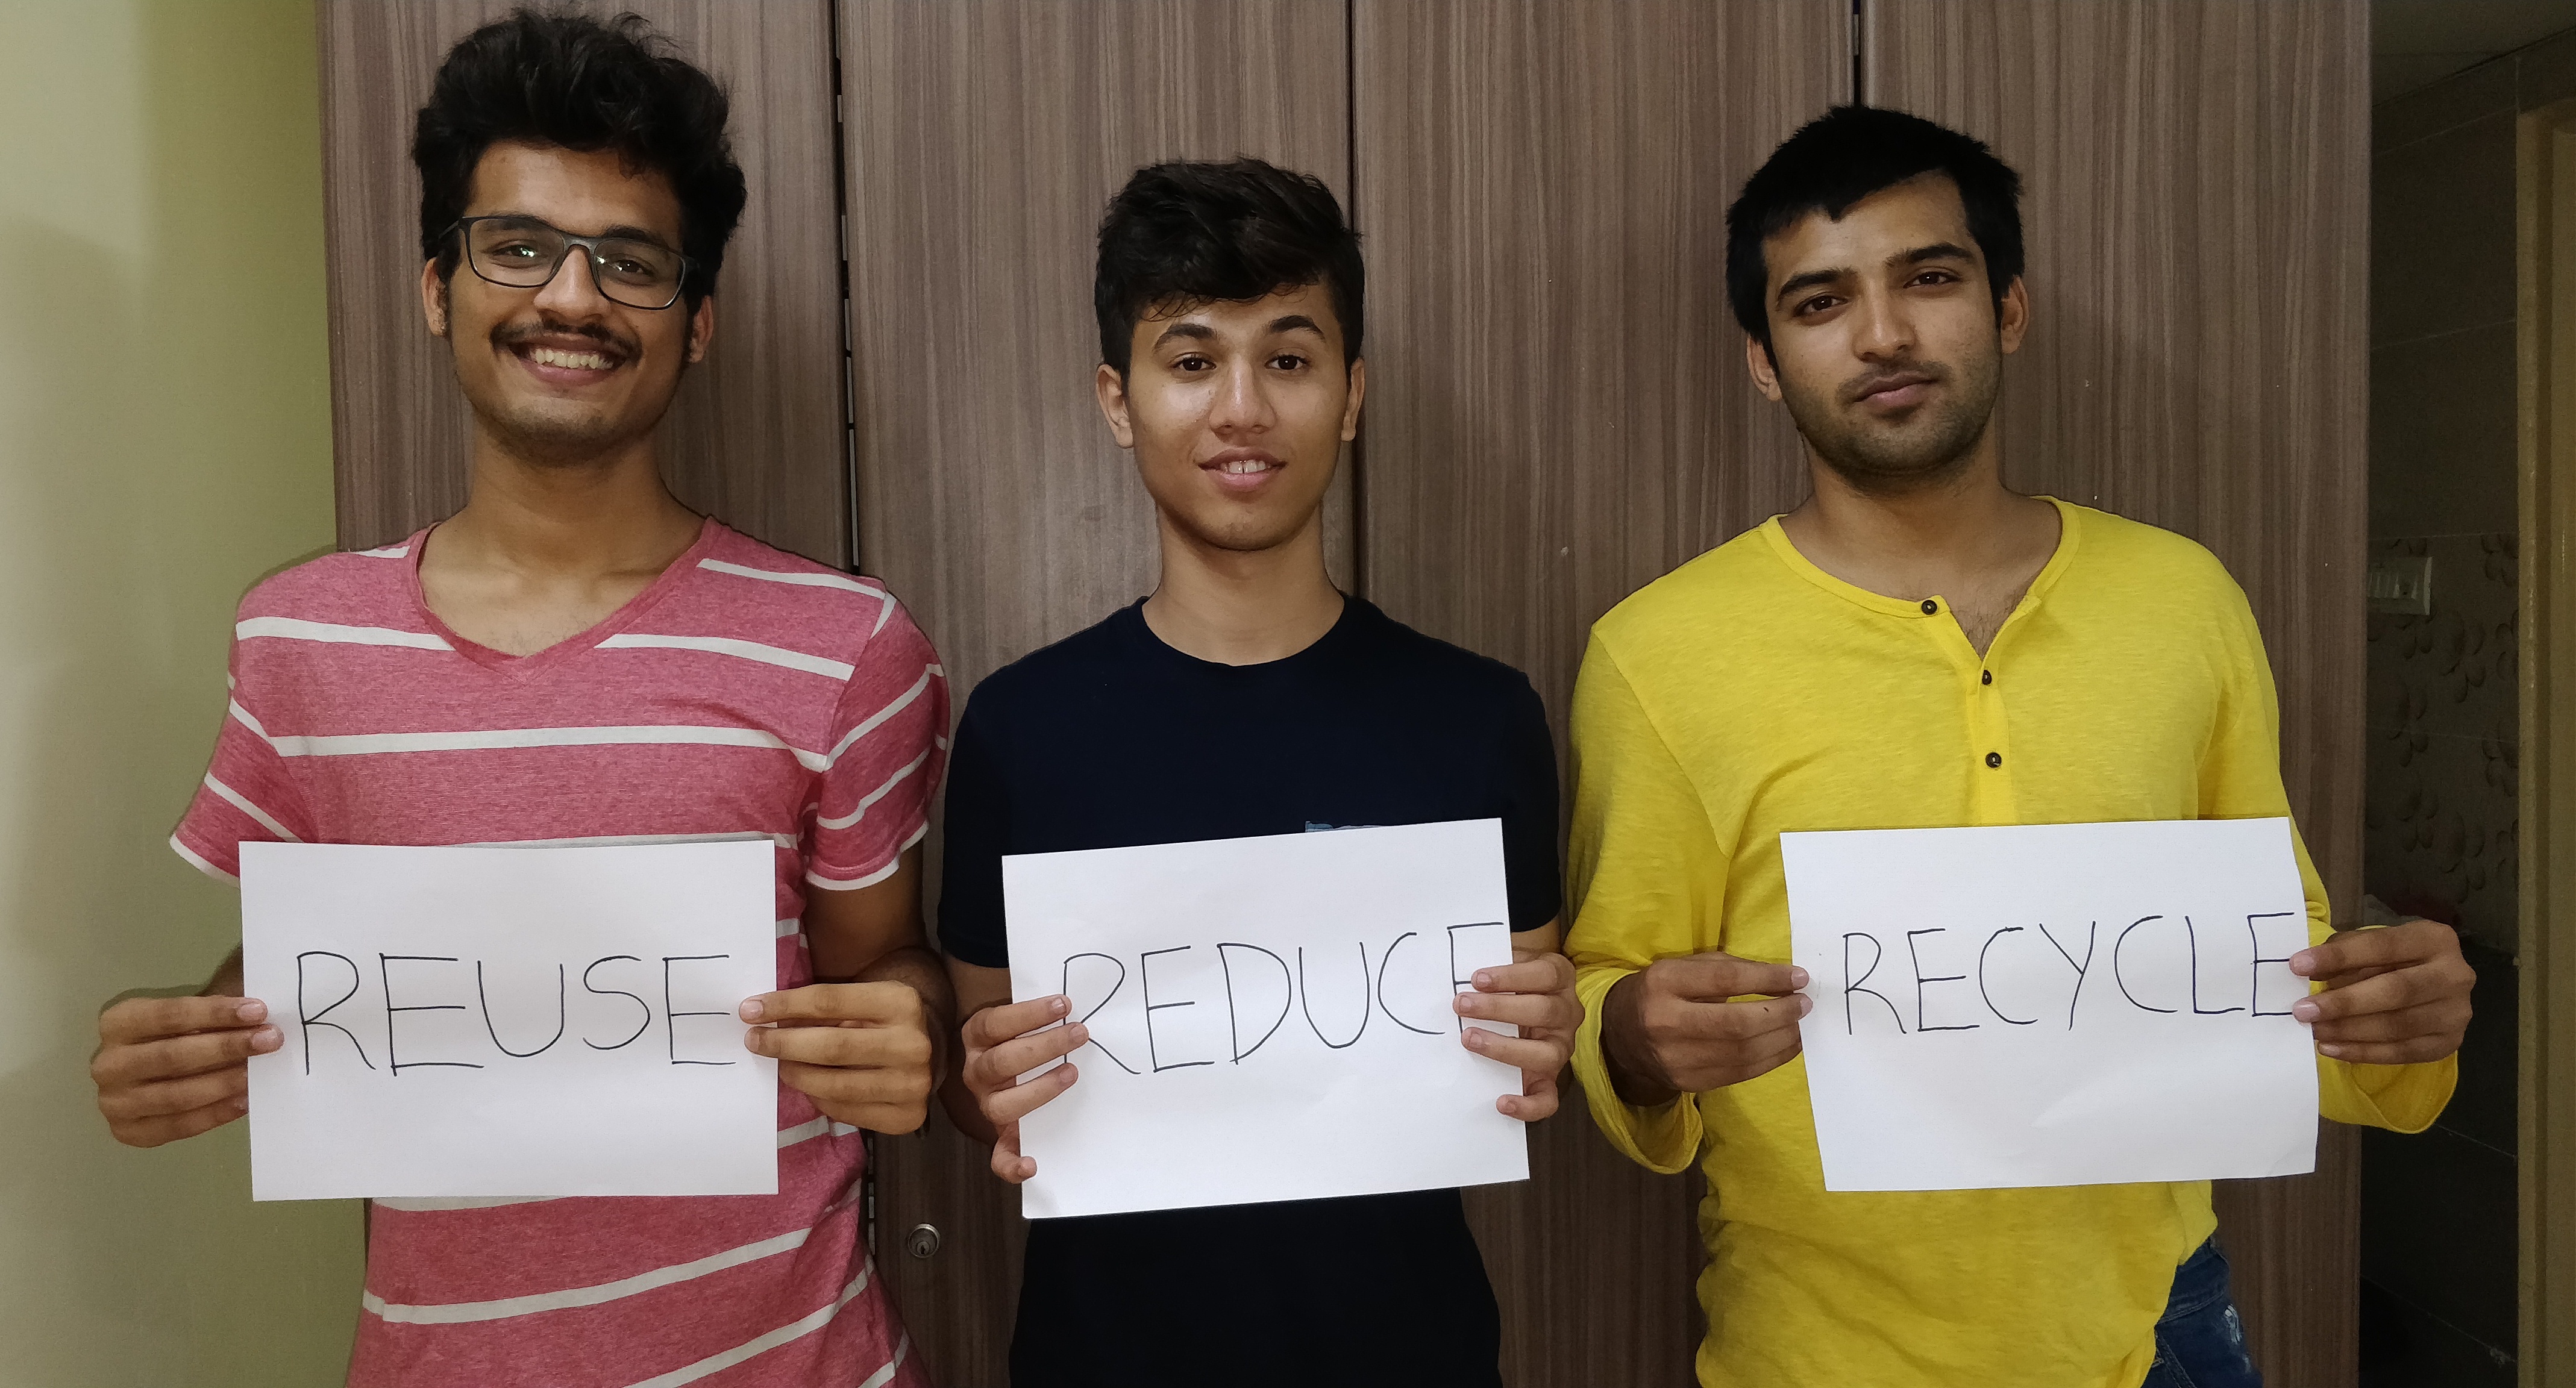 REUSE
REDUCE
RECYCLE